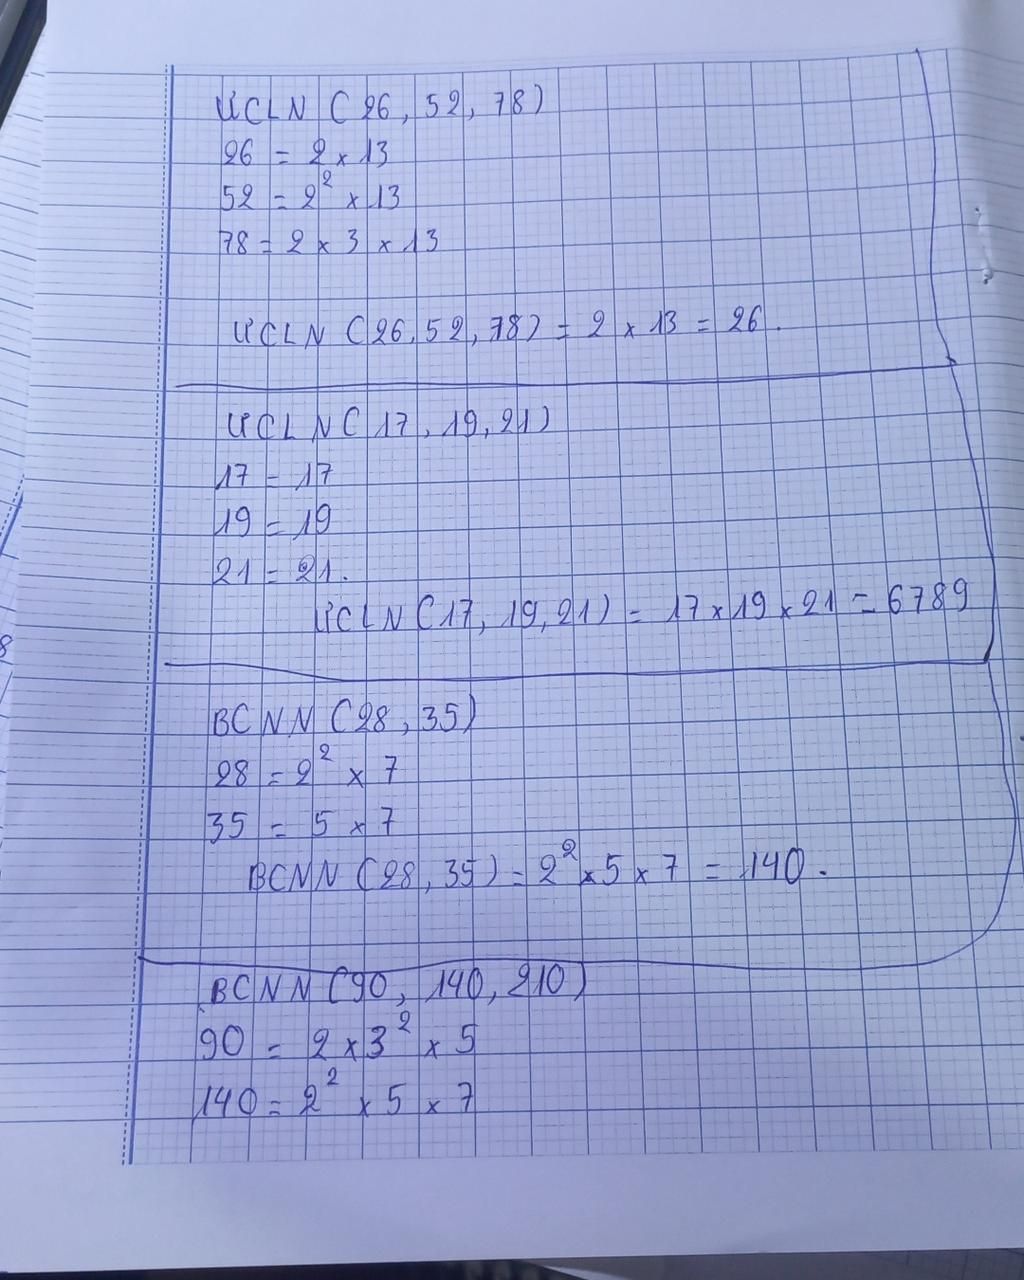 ƯCLN (26, 52, 78)
26 = 2 × 13
52 = 2² × 13
78 = 2 × 3 × 13
ƯCLN (26, 52, 78) = 2 × 13 = 26.
ƯCLN (17, 19, 21)
17 = 17
19 = 19
21 = 21.
ƯCLN (17, 19, 21) = 17 × 19 × 21 = 6789
BCNN (28, 35)
28 = 2² × 7
35 = 5 × 7
BCNN (28, 35) = 2² × 5 × 7 = 140.
BCNN (90, 140, 210)
90 = 2 × 3² × 5
140 = 2² × 5 × 7